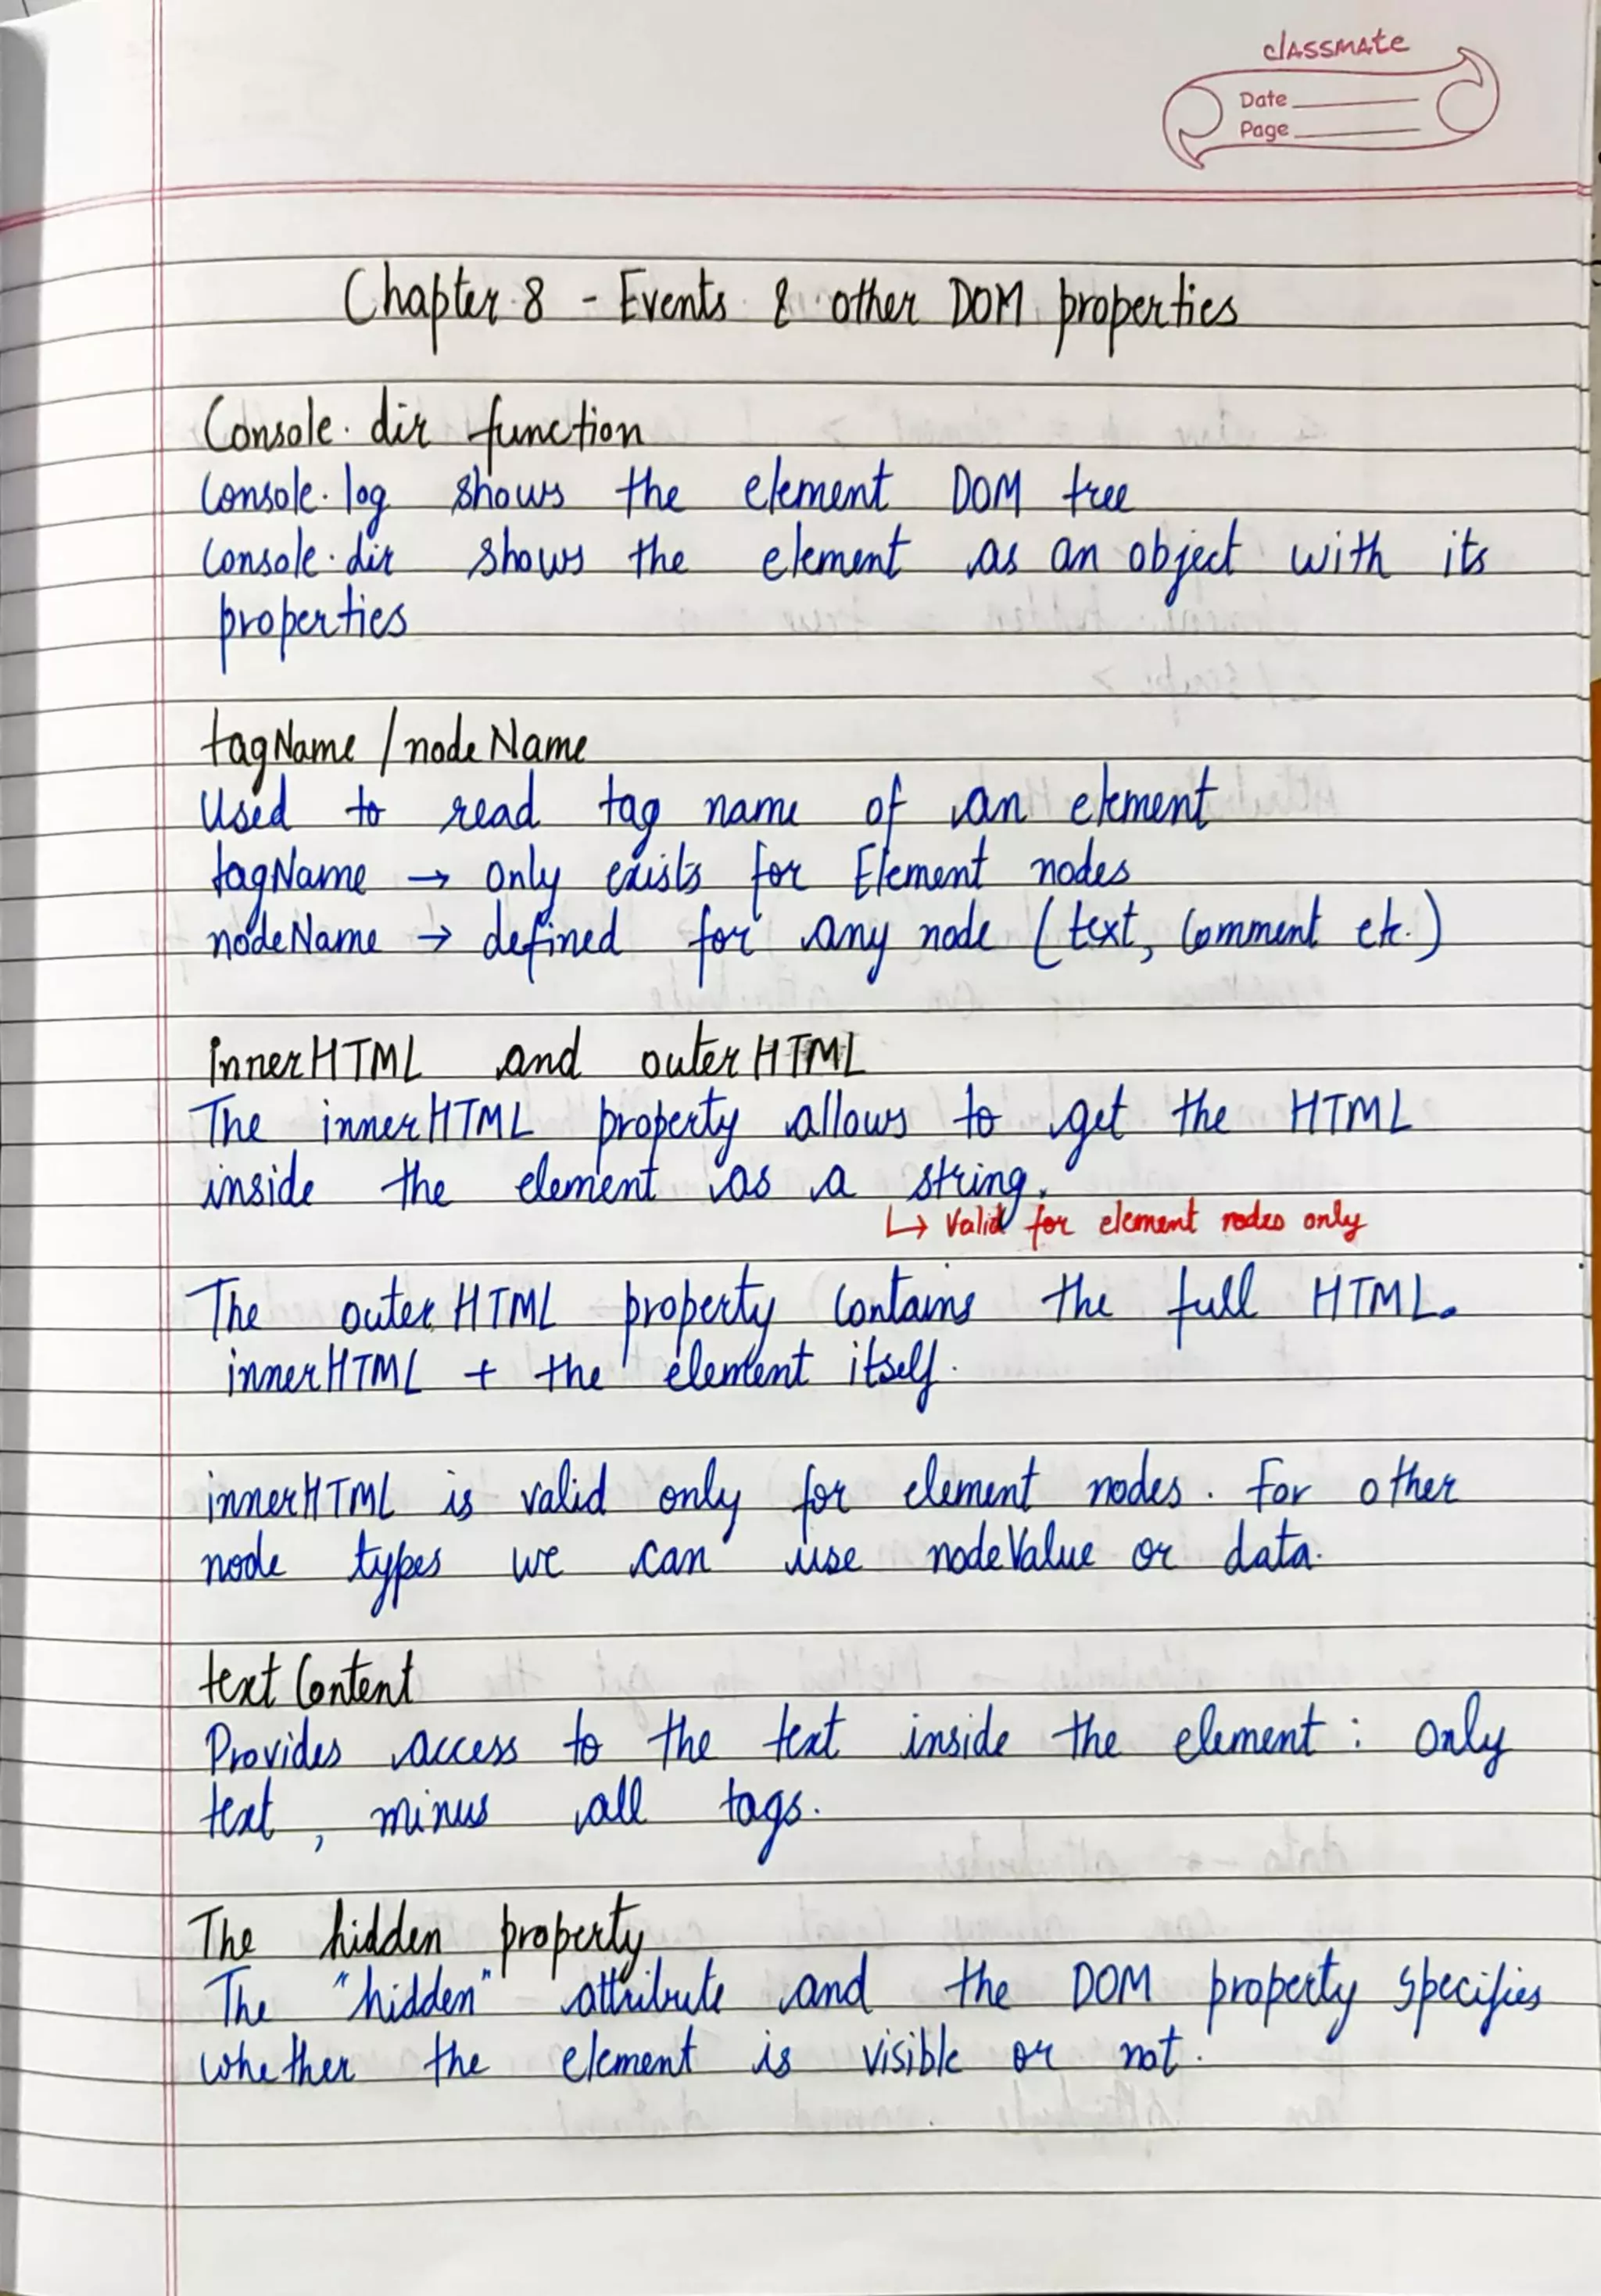 classmate
Date
Page
Chapter 8 - Events & other DOM properties
Console.dir function
Console.log shows the element DOM tree
Console.dir shows the element as an object with its
properties
tagName / nodeName
Used to read tag name of an element
tagName → only exists for Element nodes
nodeName → defined for any node (text, Comment etc.)
innerHTML and outerHTML
The innerHTML property allows to get the HTML
inside the element as a string.
↳ Valid for element nodes only
The outerHTML property Contains the full HTML.
innerHTML + the element itself.
innerHTML is valid only for element nodes. For other
node types we can use nodeValue or data.
textContent
Provides access to the text inside the element : only
text, minus all tags.
The hidden property
The "hidden" attribute and the DOM property specifies
whether the element is visible or not.